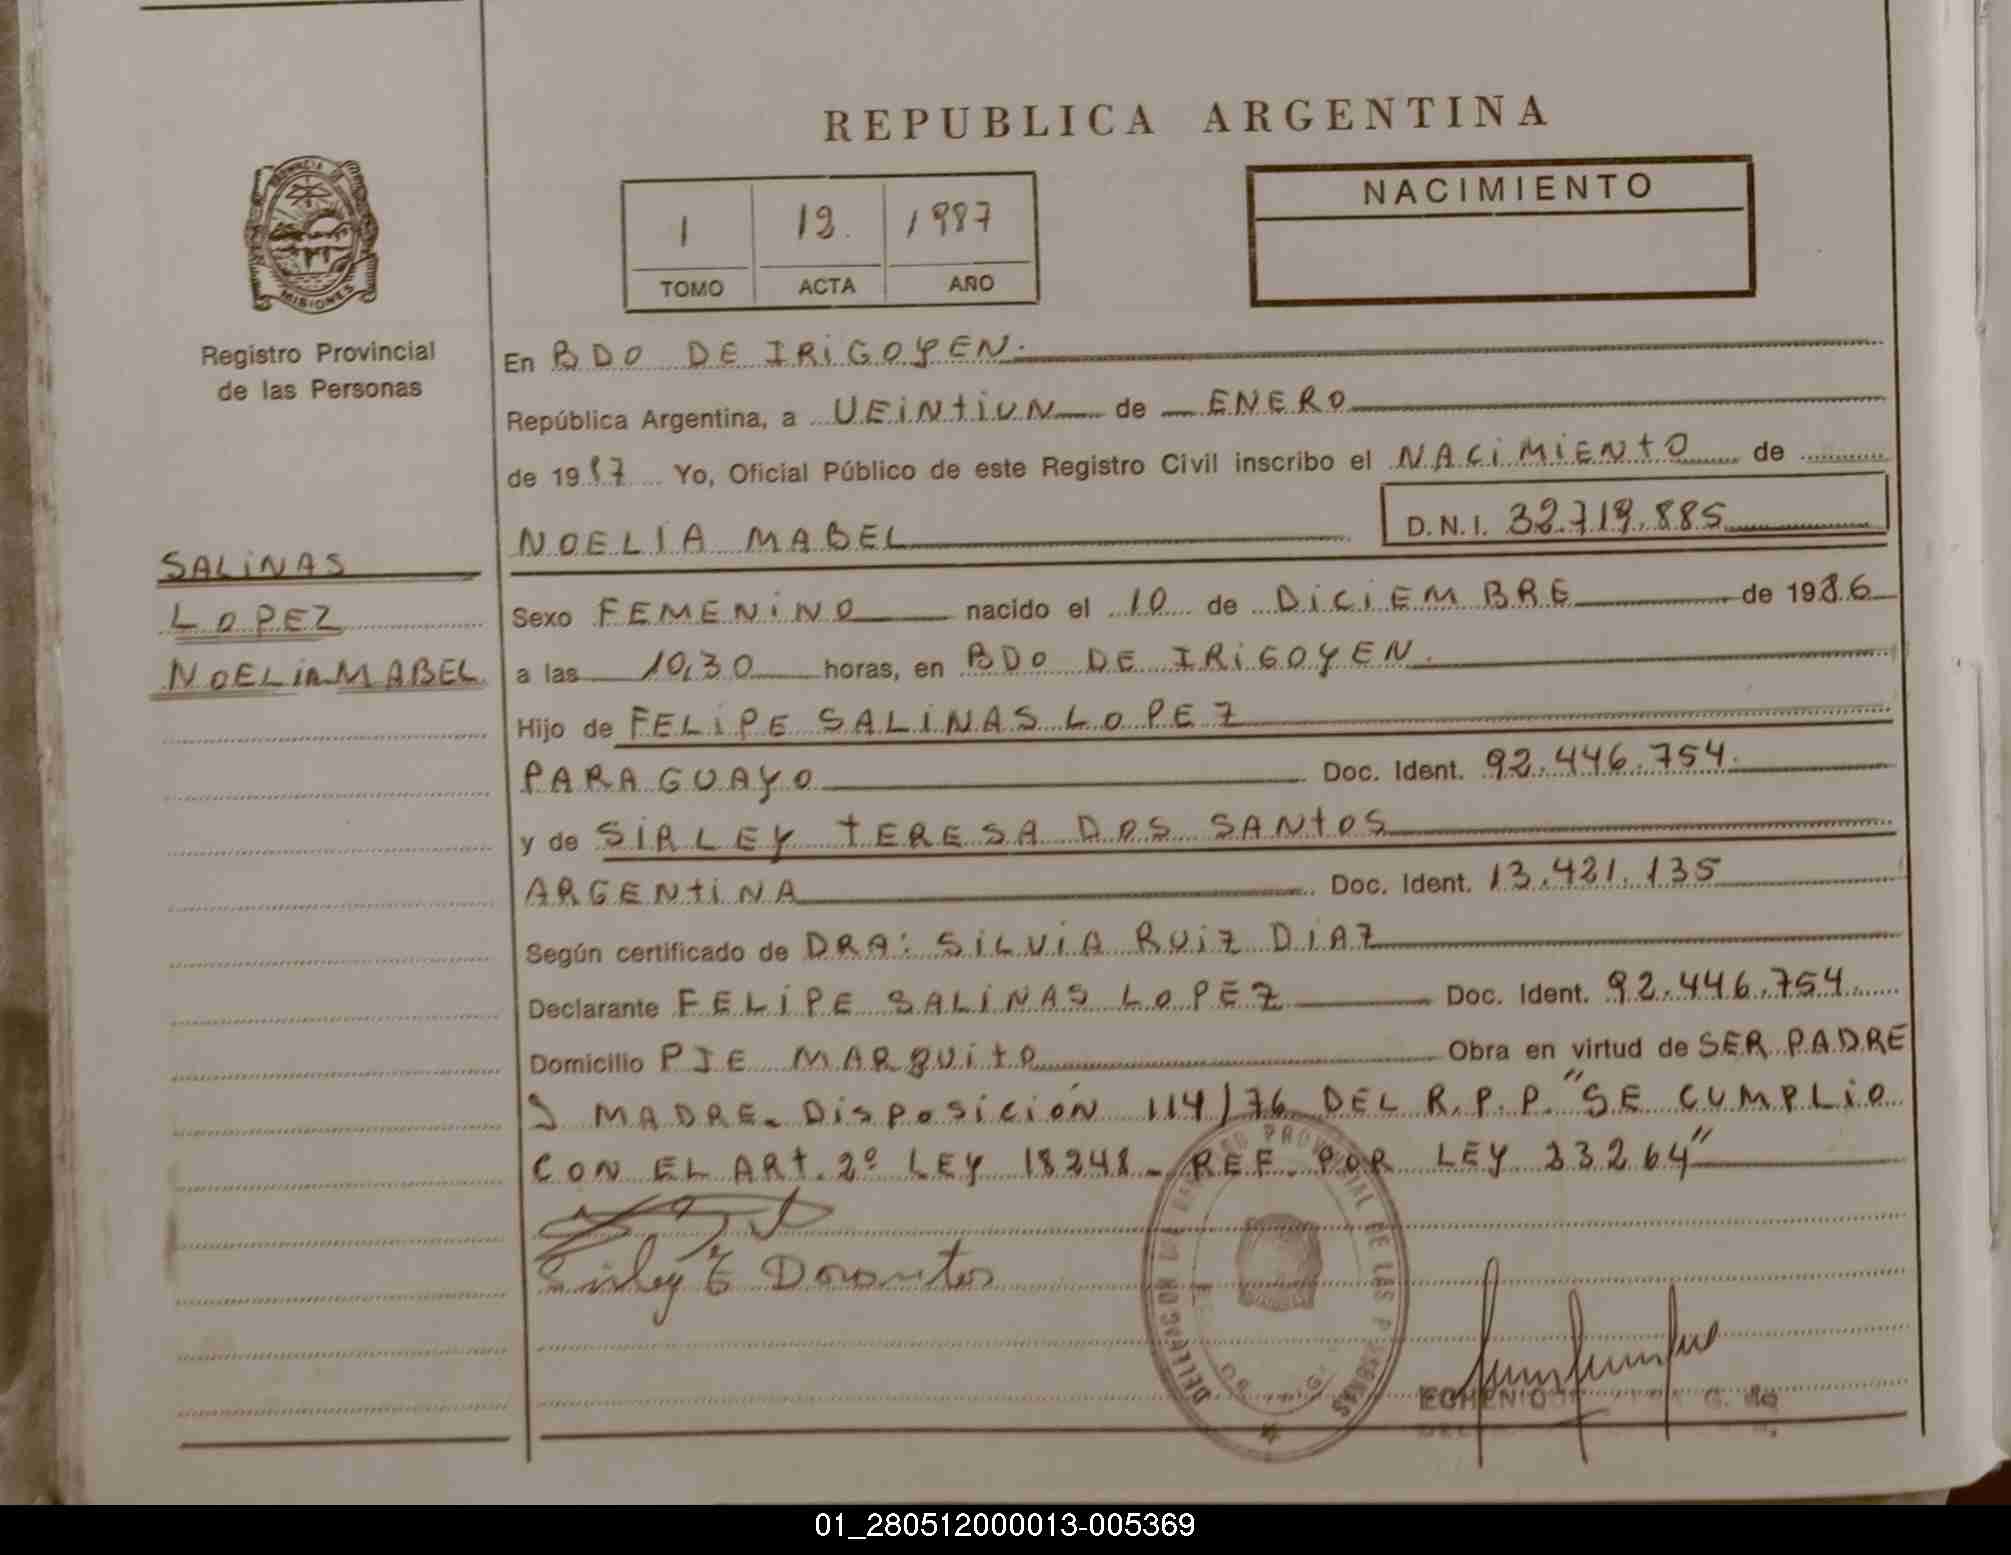 REPUBLICA ARGENTINA
NACIMIENTO
1 19. 1987
TOMO ACTA AÑO
PROVINCIA DE
MISIONES
Registro Provincial
de las Personas
En BDO DE IRIGOYEN.
República Argentina, a VEINTIUN de ENERO
de 1987 Yo, Oficial Público de este Registro Civil inscribo el NACIMIENTO de
NOELIA MABEL D.N.I. 32.719.885
SALINAS
LOPEZ
NOELIA MABEL
Sexo FEMENINO nacido el 10 de DICIEMBRE de 1986
a las 10,30 horas, en BDO DE IRIGOYEN.
Hijo de FELIPE SALINAS LOPEZ
PARAGUAYO Doc. Ident. 92.446.754.
y de SIRLEY TERESA DOS SANTOS
ARGENTINA Doc. Ident. 13.421.135
Según certificado de DRA: SILVIA RUIZ DIAZ
Declarante FELIPE SALINAS LOPEZ Doc. Ident. 92.446.754
Domicilio PJE MARQUITO Obra en virtud de SER PADRE
Y MADRE. DISPOSICIÓN 114/76 DEL R.P.P. "SE CUMPLIO
CON EL ART. 2º LEY 18248 - REF. POR LEY 23264"
Sirley T Dosantos
DELEGACION DEL REGISTRO PROVINCIAL DE LAS PERSONAS
G. de
01_280512000013-005369